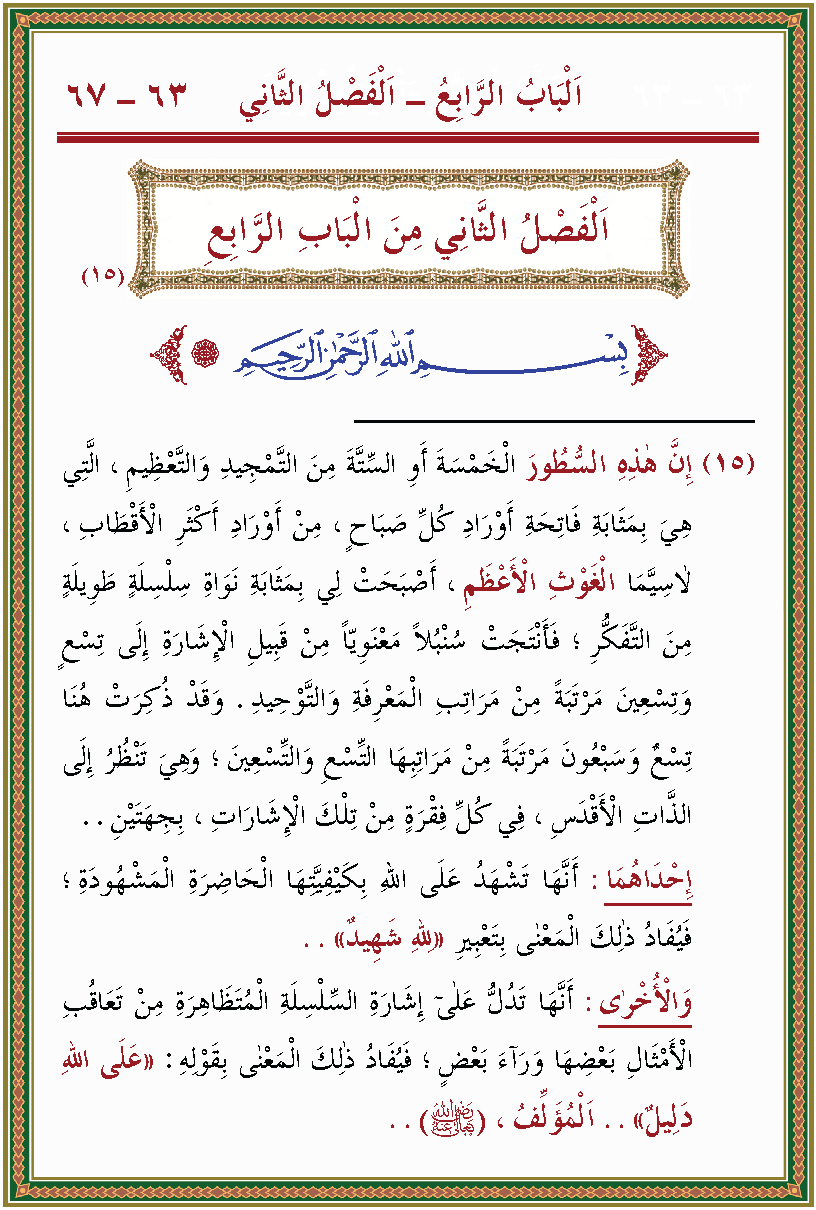 اَلْبَابُ الرَّابِعُ – اَلْفَصْلُ الثَّانِي ٦٣ – ٦٧
اَلْفَصْلُ الثَّانِي مِنَ الْبَابِ الرَّابِعِ
(١٥)
بِسْــمِ اللهِ الرَّحْمٰنِ الرَّحِيمِ
(١٥) إِنَّ هٰذِهِ السُّطُورَ الْخَمْسَةَ أَوِ السِّتَّةَ مِنَ التَّمْجِيدِ وَالتَّعْظِيمِ ، الَّتِي
هِيَ بِمَثَابَةِ فَاتِحَةِ أَوْرَادِ كُلِّ صَبَاحٍ ، مِنْ أَوْرَادِ أَكْثَرِ الْأَقْطَابِ ،
لَاسِيَّمَا الْغَوْثِ الْأَعْظَمِ ، أَصْبَحَتْ لِي بِمَثَابَةِ نَوَاةِ سِلْسِلَةٍ طَوِيلَةٍ
مِنَ التَّفَكُّرِ ؛ فَأَنْتَجَتْ سُنْبُلاً مَعْنَوِيّاً مِنْ قَبِيلِ الْإِشَارَةِ إِلَى تِسْعٍ
وَتِسْعِينَ مَرْتَبَةً مِنْ مَرَاتِبِ الْمَعْرِفَةِ وَالتَّوْحِيدِ . وَقَدْ ذُكِرَتْ هُنَا
تِسْعٌ وَسَبْعُونَ مَرْتَبَةً مِنْ مَرَاتِبِهَا التِّسْعِ وَالتِّسْعِينَ ؛ وَهِيَ تَنْظُرُ إِلَى
الذَّاتِ الْأَقْدَسِ ، فِي كُلِّ فِقْرَةٍ مِنْ تِلْكَ الْإِشَارَاتِ ، بِجِهَتَيْنِ . .
إِحْدَاهُمَا : أَنَّهَا تَشْهَدُ عَلَى اللهِ بِكَيْفِيَّتِهَا الْحَاضِرَةِ الْمَشْهُودَةِ ؛
فَيُفَادُ ذٰلِكَ الْمَعْنٰى بِتَعْبِيرِ «لِلهِ شَهِيدٌ» . .
وَالْأُخْرٰى : أَنَّهَا تَدُلُّ عَلٰىٓ إِشَارَةِ السِّلْسِلَةِ الْمُتَظَاهِرَةِ مِنْ تَعَاقُبِ
الْأَمْثَالِ بَعْضِهَا وَرَآءَ بَعْضٍ ؛ فَيُفَادُ ذٰلِكَ الْمَعْنٰى بِقَوْلِهِ : «عَلَى اللهِ
دَلِيلٌ» . . اَلْمُؤَلِّفُ ، (رضي الله تعالى عنه) . .